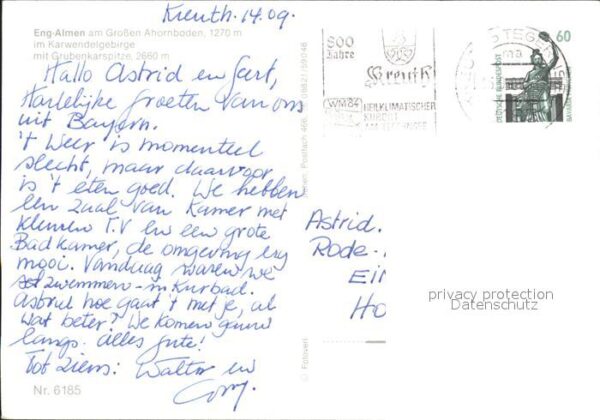 Kreuth. 14.09.
Eng-Almen am Großen Ahornboden, 1270 m
im Karwendelgebirge
mit Grubenkarspitze, 2660 m
Hallo Astrid en Gert,
Hartelijke groeten van ons
uit Bayern.
't Weer is momenteel
slecht, maar daarvoor
is 't eten goed. We hebben
een zaal van Kamer met
Kleuren T.V en een grote
Badkamer, de omgeving erg
mooi. Vandaag waren we
zwemmen - in Kurbad.
Astrid hoe gaat 't met je, al
wat beter? We komen gauw
langs. alles gute!
Tot ziens: Walter en
Corry.
Nr. 6185
© Fotoverl
Postfach 466
800
Jahre
Kreuth
HEILKLIMATISCHER
KURORT
60
DEUTSCHE BUNDESPOST
Astrid.
Rode-
EI
Ho
privacy protection
Datenschutz